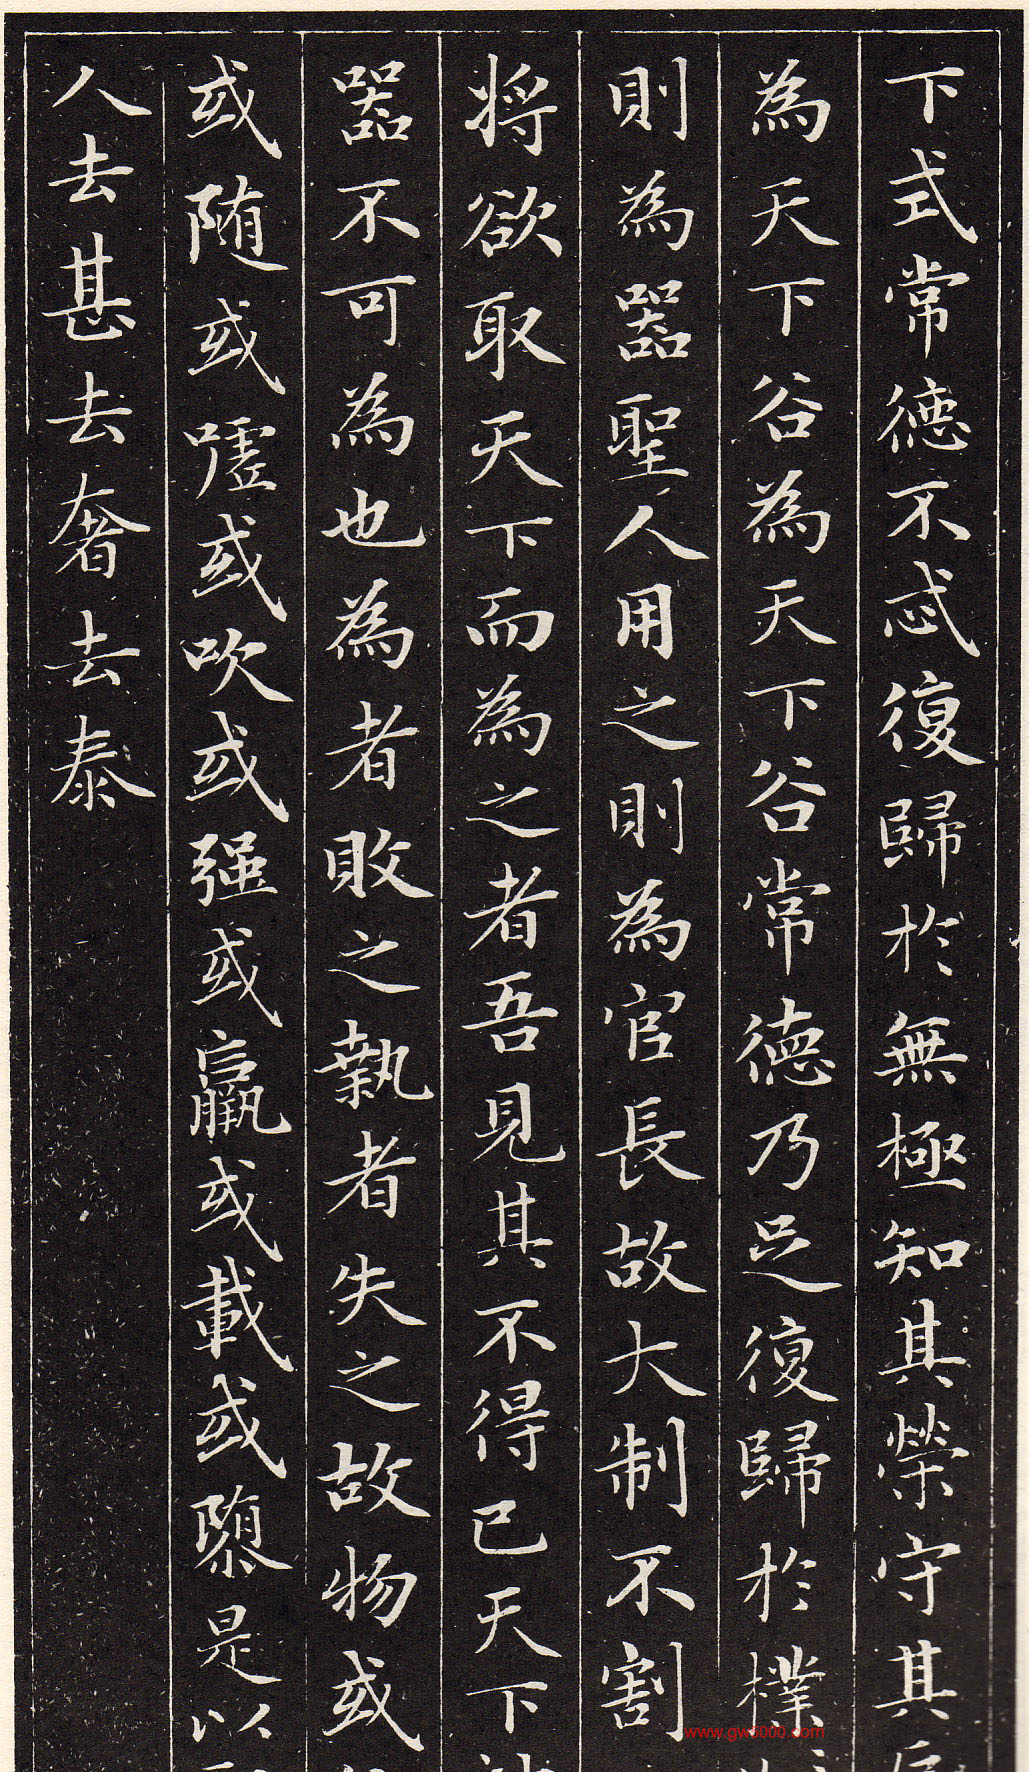 下式常德不忒復歸於無極知其榮守其
為天下谷為天下谷常德乃足復歸於樸
則為器聖人用之則為官長故大制不割
將欲取天下而為之者吾見其不得已天下
器不可為也為者敗之執者失之故物或
或随或嘘或吹或强或羸或載或隳是以
人去甚去奢去泰
www.gw5000.com